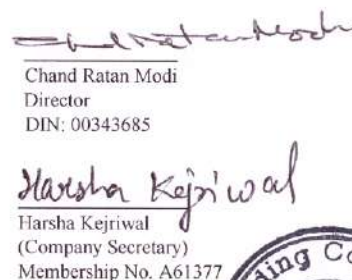 Chand Ratan Modi
Chand Ratan Modi
Director
DIN: 00343685
Harsha Kejriwal
Harsha Kejriwal
(Company Secretary)
Membership No. A61377
ding Co